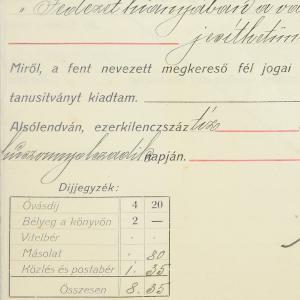 „Fedezet hiányában a vá
Miről, a fent nevezett megkereső fél jogai
tanusitványt kiadtam.
Alsólendván, ezerkilenczszáz tíz
huszonnyolczadik napján.
Dijjegyzék:
Óvásdij 4 20
Bélyeg a könyvön 2 —
Vitelbér . .
Másolat . 80
Közlés és postabér 1. 35
Összesen 8. 35